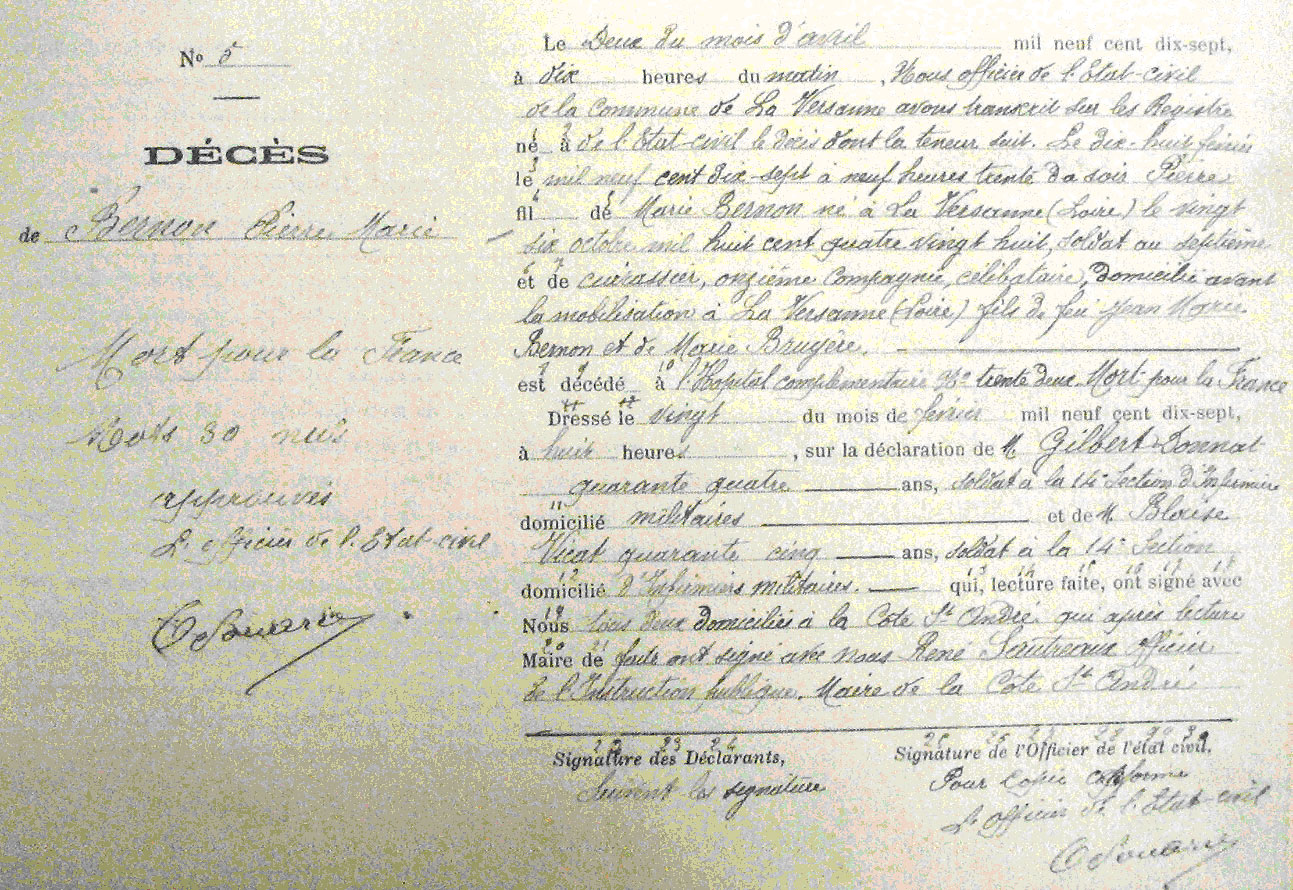 N° 5
DÉCÈS
de Bernon Pierre Marie
Mort pour la France
Mots 30 nuls
approuvés
L'officier de l'Etat-civil
Le Deux du mois d'avril mil neuf cent dix-sept,
à dix heures du matin, Nous officier de l'Etat-civil
de la Commune de La Versanne avons transcrit sur les Registre
né à de l'Etat-civil le décès dont la teneur suit. Le dix-huit février
le mil neuf cent dix-sept à neuf heures trente du soir Pierre
fil de Marie Bernon né à La Versanne (Loire) le vingt
six octobre mil huit cent quatre vingt huit, soldat au septième
et de cuirassier, onzième Compagnie, célibataire, domicilié avant
la mobilisation à La Versanne (Loire) fils de feu Jean Marie
Bernon et de Marie Bruyère.
est décédé à l'Hopital complémentaire N° trente deux. Mort pour la France
Dressé le vingt du mois de février mil neuf cent dix-sept,
à huit heures, sur la déclaration de M. Gilbert Donnat
quarante quatre ans, soldat à la 14e Section d'Infirmiers
domicilié militaires et de M. Blaise
Vicat quarante cinq ans, soldat à la 14e Section
domicilié d'Infirmiers militaires. qui, lecture faite, ont signé avec
Nous tous deux domiciliés à la Côte St André qui après lecture
Maire de faite ont signé avec nous René Sautreaux Officier
de l'Instruction publique. Maire de la Côte St André
Signature des Déclarants, Signature de l'Officier de l'état civil.
Suivent les signature
Pour Copie conforme
L'officier de l'Etat-civil